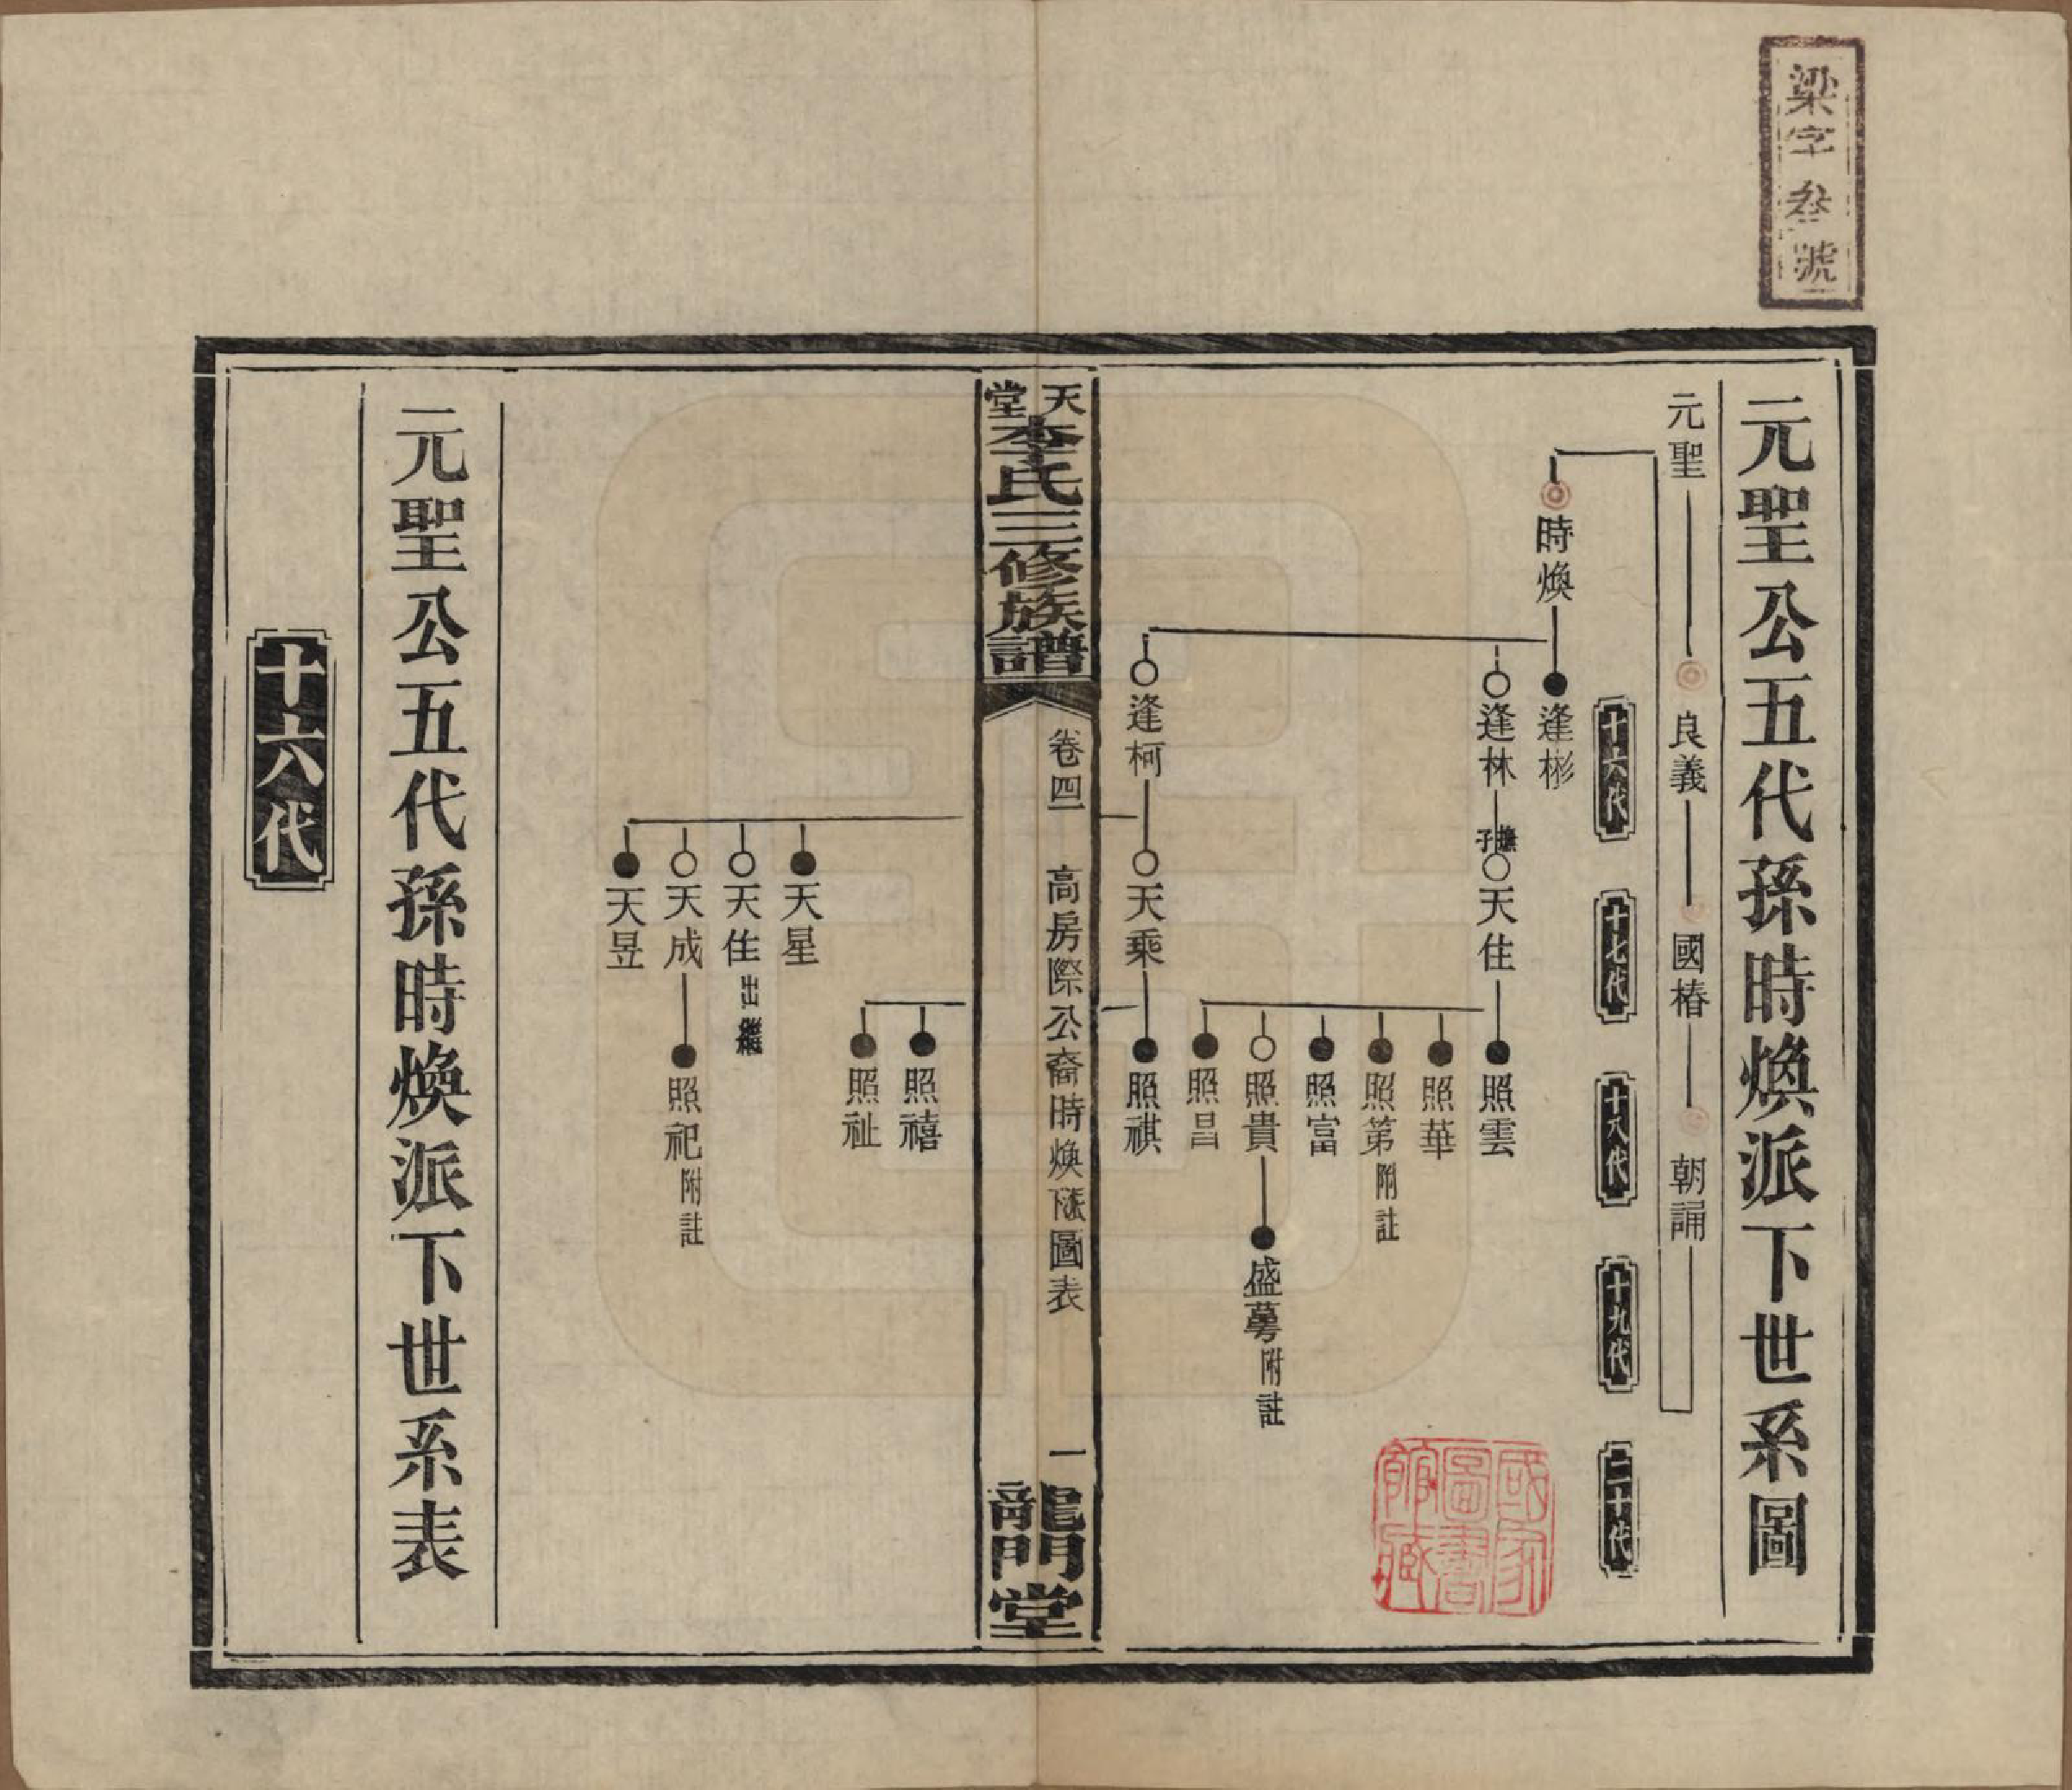 梁字叁號
元聖公五代孫時煥派下世系圖
元聖
良義
國椿
朝誦
十六代
十七代
十八代
十九代
二十代
時煥
逢彬
逢林
子
天住
照雲
照華
照第附註
照富
照貴
盛萼附註
照昌
逢柯
天乘
照祺
天堂李氏三修族譜
卷四
高房際公裔時煥派圖表
一
龍門堂
照禧
照祉
天星
天住出繼
天成
照祀附註
天昱
元聖公五代孫時煥派下世系表
十六代
國家圖書館藏